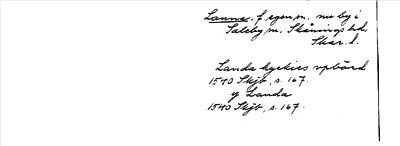 Lanna, f. egen m. nu by i
Saleby sn. Skånings hd.
Skar. l.
Landa kyrkies upbörd
1540 Skjb, s. 167.
y Landa
1540 Skjb, s. 167.